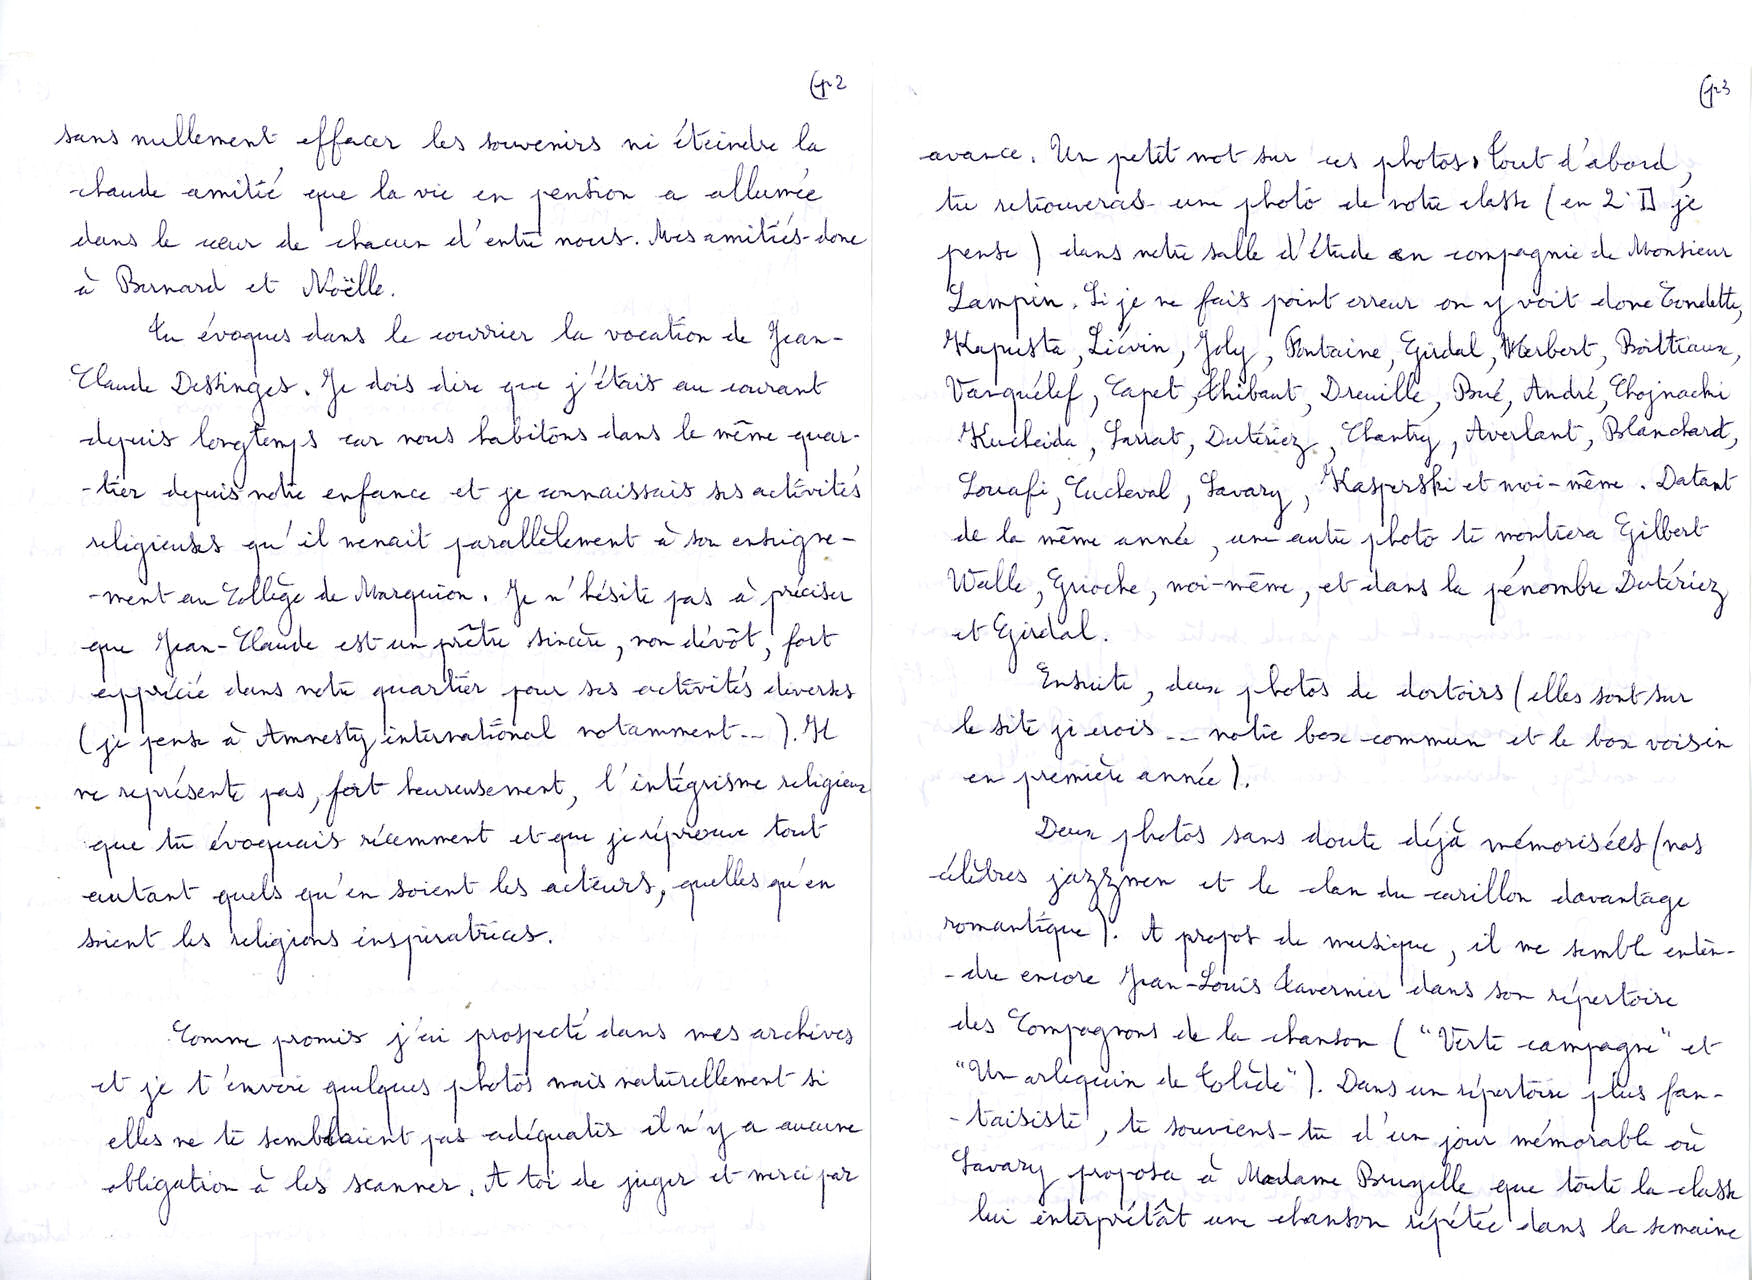 (p2
sans nullement effacer les souvenirs ni éteindre la
chaude amitié que la vie en pension a allumée
dans le cœur de chacun d'entre nous. Mes amitiés donc
à Bernard et Noëlle.
Tu évoques dans le courrier la vocation de Jean-
Claude Destinges. Je dois dire que j'étais au courant
depuis longtemps car nous habitons dans le même quar-
-tier depuis notre enfance et je connaissais ses activités
religieuses qu'il menait parallèlement à son enseigne-
-ment au Collège de Marquion. Je n'hésite pas à préciser
que Jean-Claude est un prêtre sincère, non dévôt, fort
apprécié dans notre quartier pour ses activités diverses
(je pense à Amnesty international notamment...). Il
ne représente pas, fort heureusement, l'intégrisme religieux
que tu évoquais récemment et que je réprouve tout
autant quels qu'en soient les acteurs, quelles qu'en
soient les religions inspiratrices.
Comme promis j'ai prospecté dans mes archives
et je t'envoie quelques photos mais naturellement si
elles ne te semblaient pas adéquates il n'y a aucune
obligation à les scanner. A toi de juger et merci par
(p3
avance. Un petit mot sur ces photos. Tout d'abord,
tu retrouveras une photo de notre classe (en 2° II je
pense) dans notre salle d'étude en compagnie de Monsieur
Lampin. Si je ne fais point erreur on y voit donc Condette,
Kapusta, Liévin, Joly, Fontaine, Girdal, Herbert, Boittiaux,
Vanquélef, Capet, Thibaut, Dreuille, Bué, André, Chojnacki
Kucheida, Sarrat, Dutériez, Chantry, Averlant, Blanchard,
Louafi, Cucheval, Savary, Kasperski et moi-même. Datant
de la même année, une autre photo te montrera Gilbert
Walle, Grioche, moi-même, et dans la pénombre Dutériez
et Girdal.
Ensuite, deux photos de dortoirs (elles sont sur
le site je crois... notre box commun et le box voisin
en première année).
Deux photos sans doute déjà mémorisées (nos
célèbres jazzmen et le clan du carillon davantage
romantique). A propos de musique, il me semble enten-
-dre encore Jean-Louis Tavernier dans son répertoire
des Compagnons de la chanson ("Verte campagne" et
"Un arlequin de Tolède"). Dans un répertoire plus fan-
-taisiste, te souviens-tu d'un jour mémorable où
Savary proposa à Madame Bruyelle que toute la classe
lui interprétât une chanson répétée dans la semaine